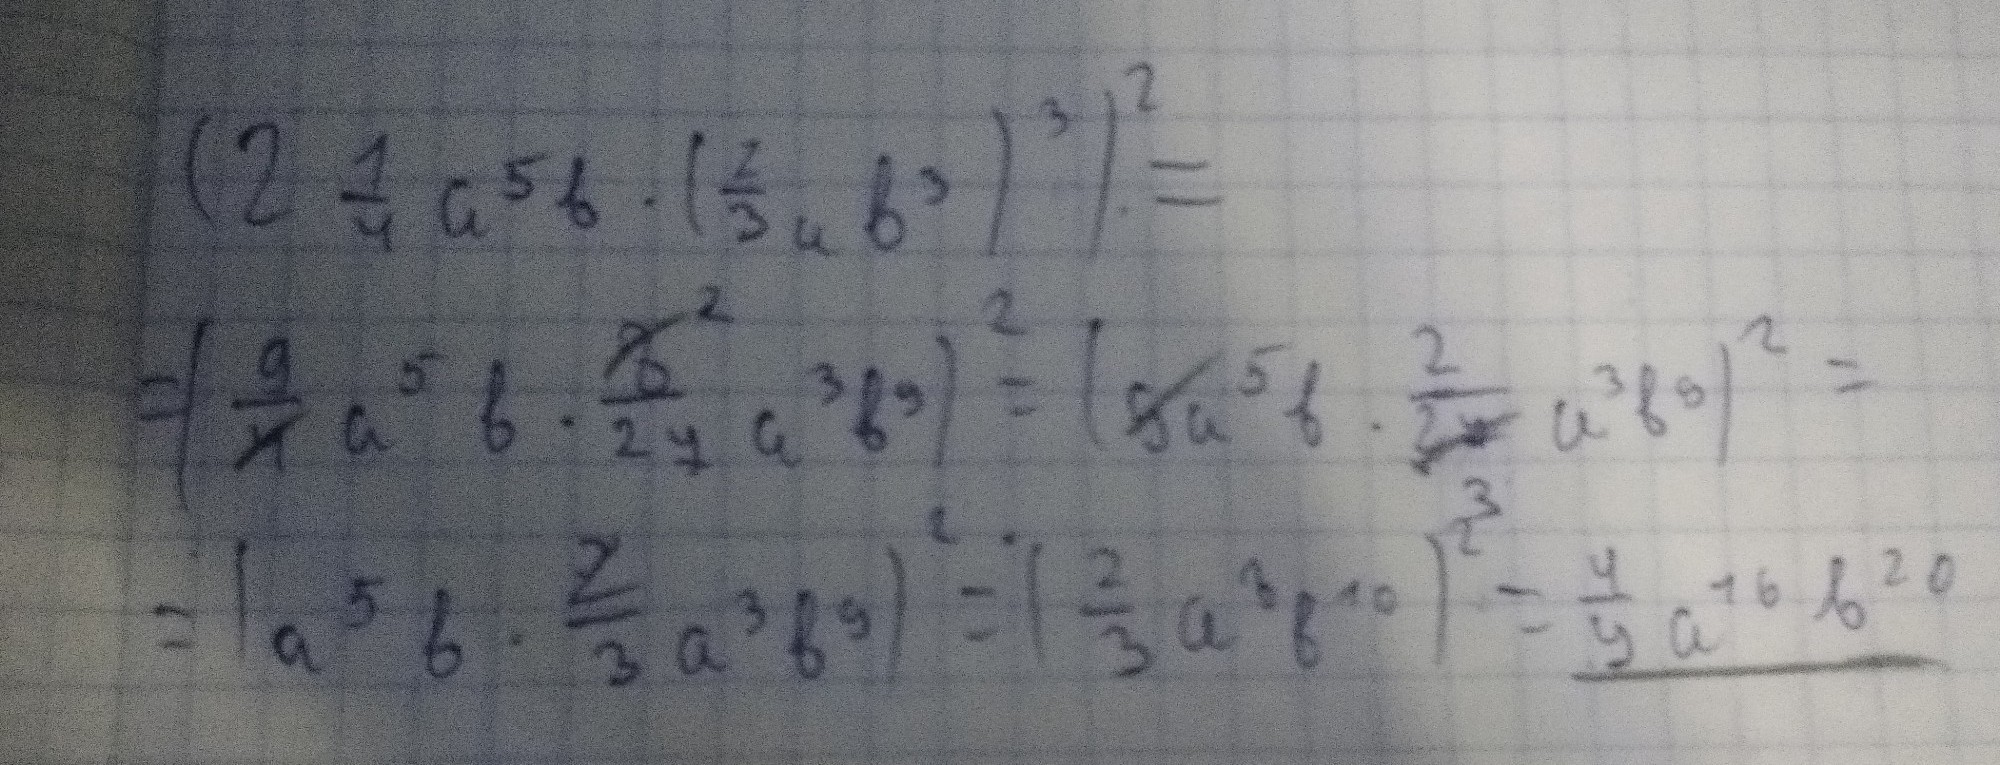 (2 1/4 a^5 b · (2/3 a b^3)^3)^2 =
= (9/4 a^5 b · 8^2/27 a^3 b^9)^2 = (9 a^5 b · 2/27 3 a^3 b^9)^2 =
= (a^5 b · 2/3 a^3 b^9)^2 = (2/3 a^8 b^10)^2 = 4/9 a^16 b^20